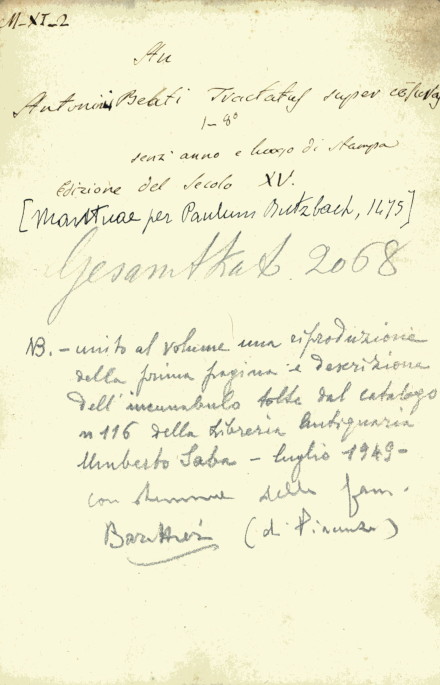 M-XI-2
An
Antonini Beati Tractatus super
1-8°
senz'anno e luogo di stampa
Edizione del Secolo XV.
[Mantuae per Paulum Butzbach, 1475]
Gesamtkat. 2068
NB. - unito al volume una riproduzione
della prima pagina e descrizione
dell'incunabulo tolte dal catalogo
n 116 della Libreria Antiquaria
Umberto Saba - luglio 1949 -
con stemma della fam.
(di Piacenza)